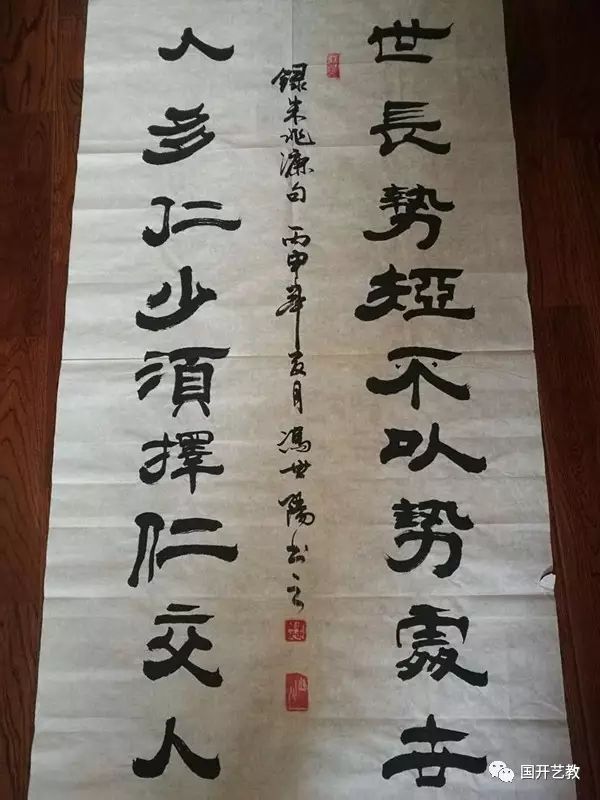 世長勢短不以勢處世
錄朱兆濂句 丙申年夏月 馮世陽書之
人多仁少須擇仁交人
国开艺教